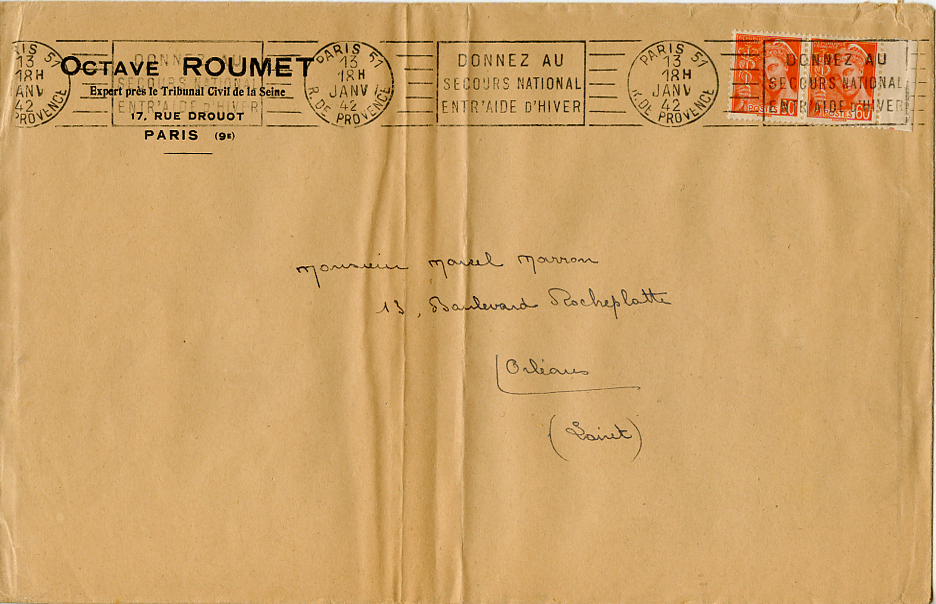 OCTAVE ROUMET
Expert près le Tribunal Civil de la Seine
17, RUE DROUOT
PARIS (9E)
PARIS 57
13
18H
JANV
42
R. DE PROVENCE
DONNEZ AU
SECOURS NATIONAL
ENTR'AIDE D'HIVER
PARIS 57
13
18H
JANV
42
R. DE PROVENCE
DONNEZ AU
SECOURS NATIONAL
ENTR'AIDE D'HIVER
PARIS 57
13
18H
JANV
42
R. DE PROVENCE
DONNEZ AU
SECOURS NATIONAL
ENTR'AIDE D'HIVER
POSTES
POSTES 60
Monsieur Marcel Marron
13, Boulevard Rocheplatte
Orléans
(Loiret)